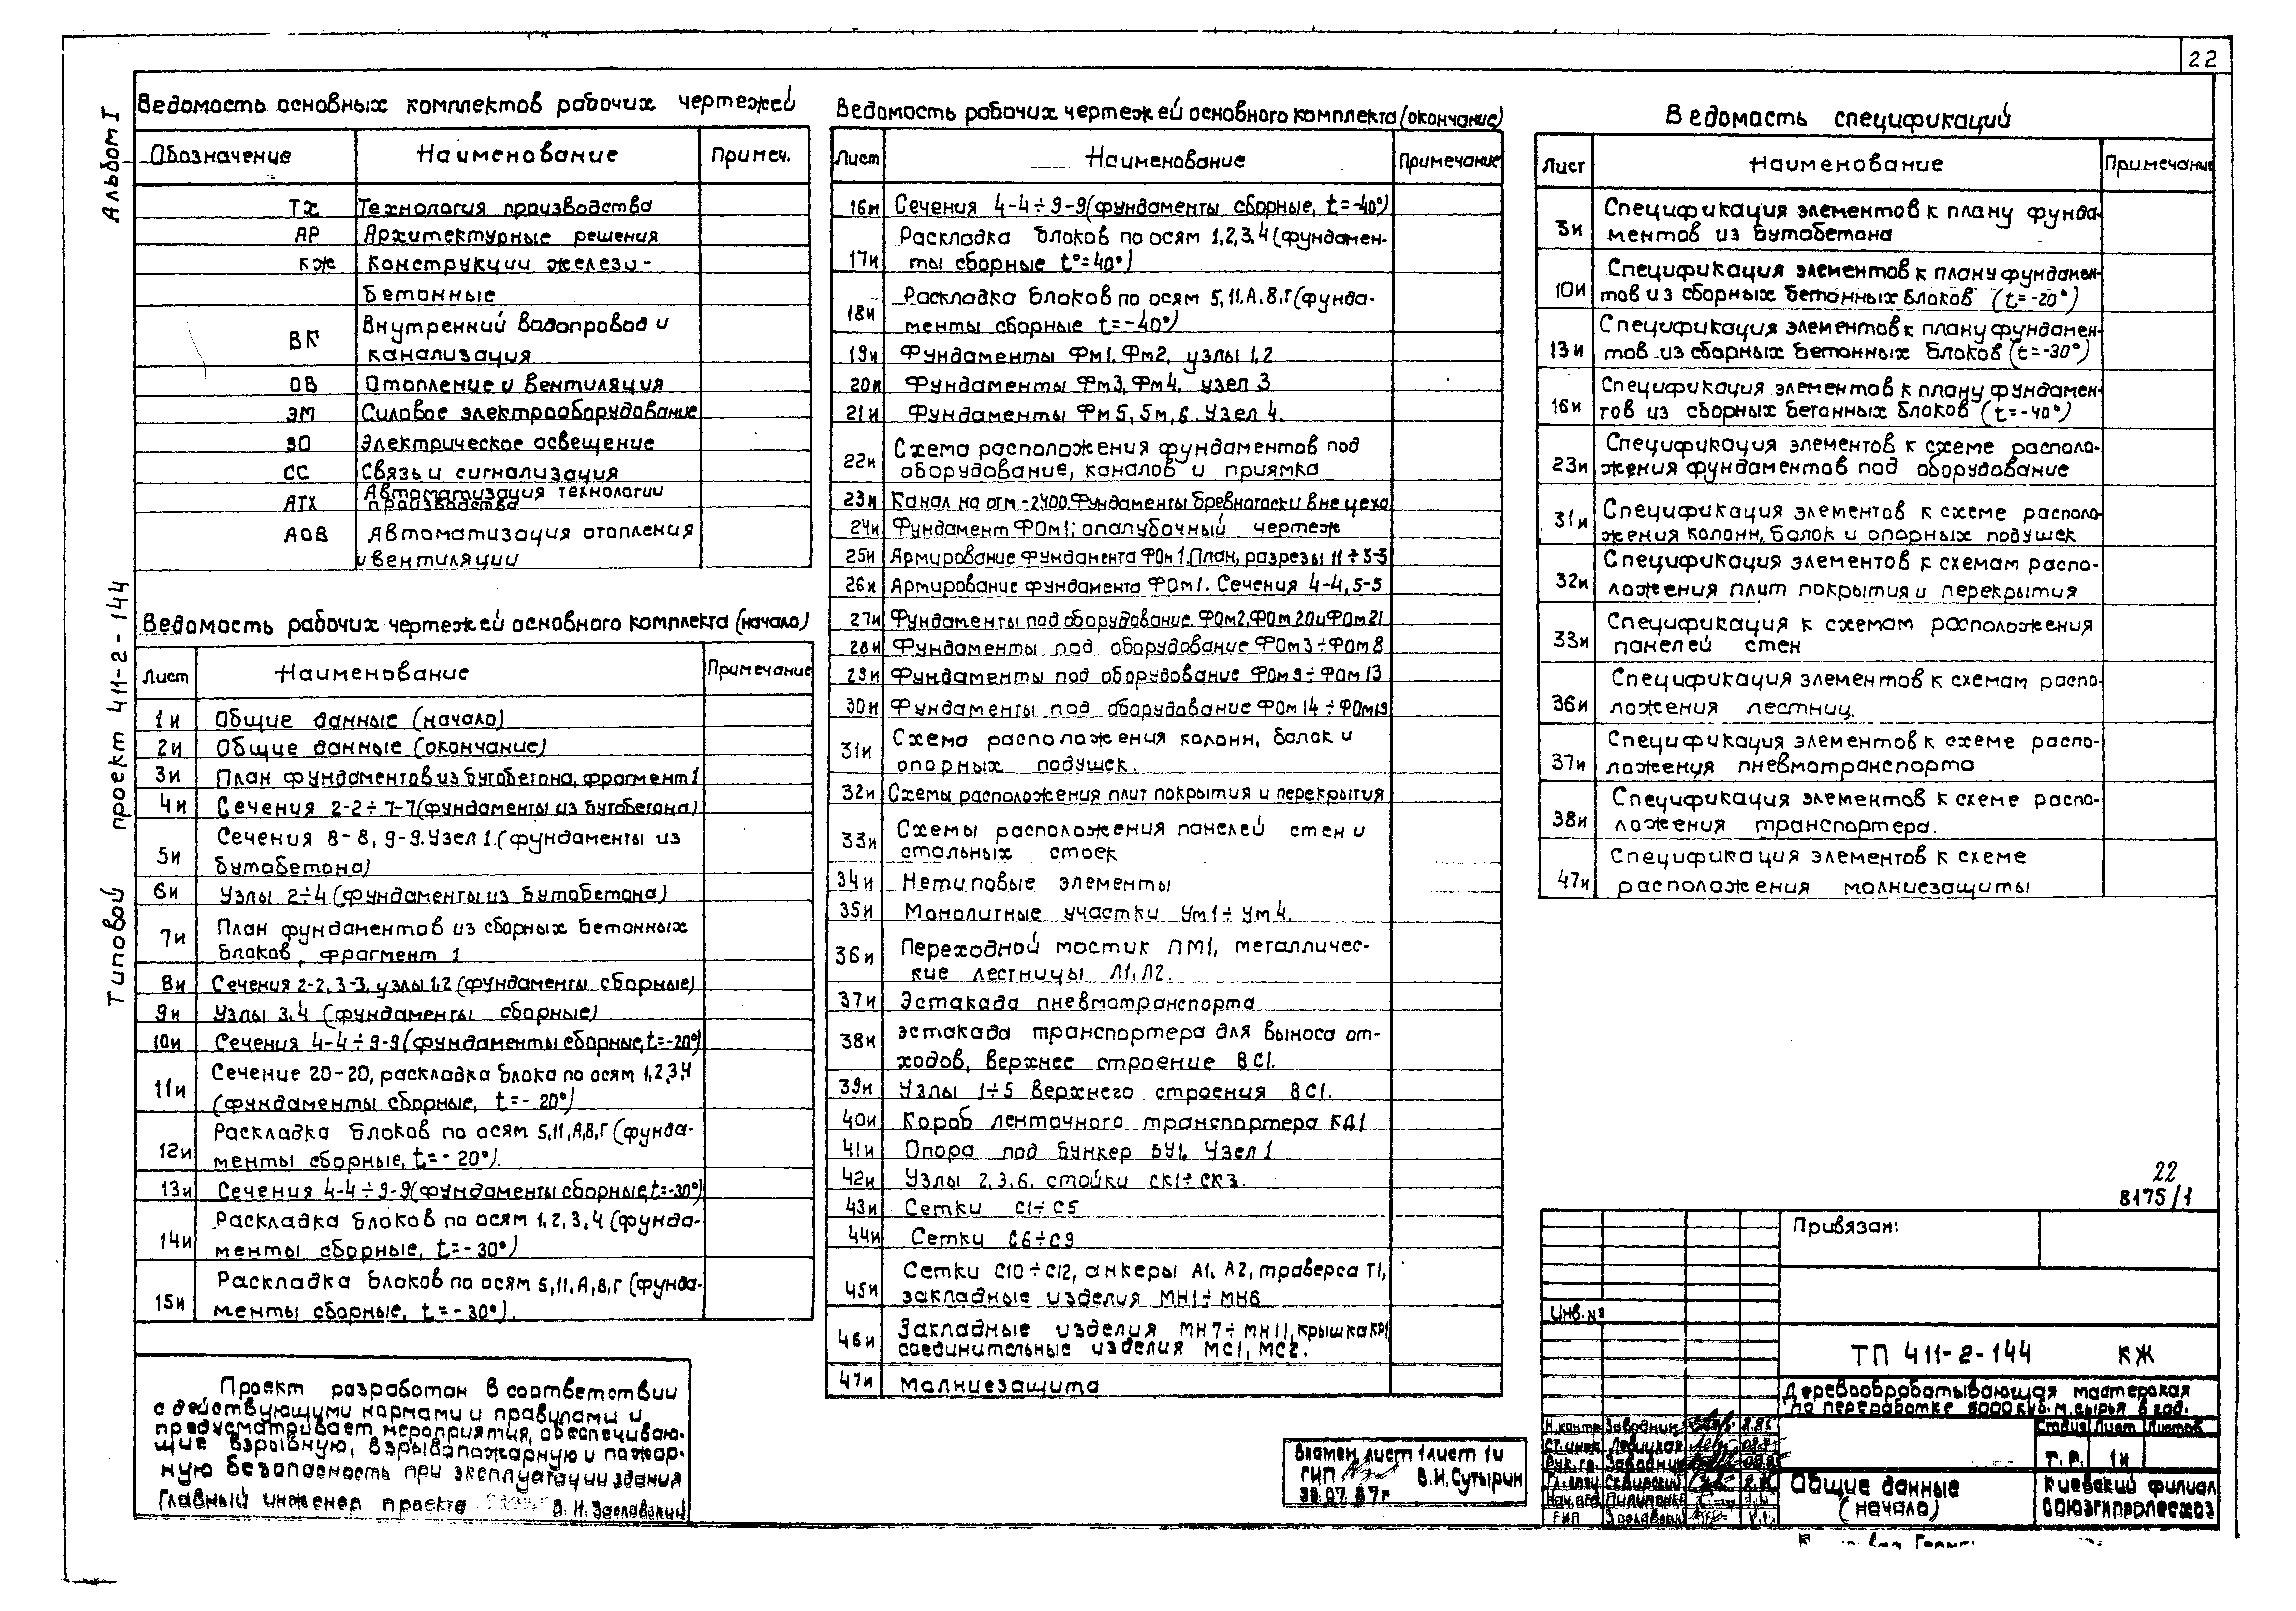 22
Альбом I
Типовой проект 411-2-144
Ведомость основных комплектов рабочих чертежей
Обозначение Наименование Примеч.
ТХ Технология производства
АР Архитектурные решения
КЖ Конструкции железо-
бетонные
ВК Внутренний водопровод и
канализация
ОВ Отопление и вентиляция
ЭМ Силовое электрооборудование
ЭО Электрическое освещение
СС Связь и сигнализация
АТХ Автоматизация технологии
производства
АОВ Автоматизация отопления
и вентиляции
Ведомость рабочих чертежей основного комплекта (начало)
Лист Наименование Примечание
1и Общие данные (начало)
2и Общие данные (окончание)
3и План фундаментов из бутобетона, фрагмент 1
4и Сечения 2-2÷7-7 (фундаменты из бутобетона)
5и Сечения 8-8, 9-9. Узел 1. (фундаменты из
бутобетона)
6и Узлы 2÷4 (фундаменты из бутобетона)
7и План фундаментов из сборных бетонных
блоков, фрагмент 1
8и Сечения 2-2, 3-3, узлы 1,2 (фундаменты сборные)
9и Узлы 3,4 (фундаменты сборные)
10и Сечения 4-4÷9-9 (фундаменты сборные, t=-20°)
11и Сечение 20-20, раскладка блока по осям 1,2,3,4
(фундаменты сборные, t=-20°)
12и Раскладка блоков по осям 5,11,А,В,Г (фунда-
менты сборные, t=-20°).
13и Сечения 4-4÷9-9 (фундаменты сборные, t=-30°)
14и Раскладка блоков по осям 1,2,3,4 (фунда-
менты сборные, t=-30°)
15и Раскладка блоков по осям 5,11,А,В,Г (фунда-
менты сборные, t=-30°).
Проект разработан в соответствии
с действующими нормами и правилами и
предусматривает мероприятия, обеспечиваю-
щие взрывную, взрывопожарную и пожар-
ную безопасность при эксплуатации здания
Главный инженер проекта В. И. Заславский
Ведомость рабочих чертежей основного комплекта (окончание)
Лист Наименование Примечание
16и Сечения 4-4÷9-9 (фундаменты сборные, t=-40°)
17и Раскладка блоков по осям 1,2,3,4 (фундамен-
ты сборные t°=40°)
18и Раскладка блоков по осям 5,11,А,В,Г (фунда-
менты сборные t=-40°)
19и Фундаменты Фм1, Фм2, узлы 1,2
20и Фундаменты Фм3, Фм4, узел 3
21и Фундаменты Фм5, 5м, 6. Узел 4.
22и Схема расположения фундаментов под
оборудование, каналов и приямка
23и Канал на отм -2.400. Фундаменты бревнотаски вне цеха
24и Фундамент ФОм1; опалубочный чертеж
25и Армирование фундамента ФОм1. План, разрезы 11÷3-3
26и Армирование фундамента ФОм1. Сечения 4-4, 5-5
27и Фундаменты под оборудование. ФОм2, ФОм20 и ФОм21
28и Фундаменты под оборудование ФОм3÷ФОм8
29и Фундаменты под оборудование ФОм9÷ФОм13
30и Фундаменты под оборудование ФОм14÷ФОм19
31и Схема расположения колонн, балок и
опорных подушек.
32и Схемы расположения плит покрытия и перекрытия
33и Схемы расположения панелей стен и
стальных стоек
34и Нетиповые элементы
35и Монолитные участки Ум1÷Ум4.
36и Переходной мостик ПМ1, металличес-
кие лестницы Л1, Л2.
37и Эстакада пневмотранспорта
38и Эстакада транспортера для выноса от-
ходов, верхнее строение ВС1.
39и Узлы 1÷5 верхнего строения ВС1.
40и Короб ленточного транспортера КД1
41и Опора под бункер БУ1. Узел 1
42и Узлы 2,3,6, стойки СК1÷СК3.
43и Сетки С1÷С5
44и Сетки С6÷С9
45и Сетки С10÷С12, анкеры А1, А2, траверса Т1,
закладные изделия МН1÷МН6
46и Закладные изделия МН7÷МН11, крышка КР1
соединительные изделия МС1, МС2.
47и Молниезащита
Взамен лист 1 лист 1и
ГИП В.И. Сутырин
30.07.87г
Ведомость спецификаций
Лист Наименование Примечание
3и Спецификация элементов к плану фунда-
ментов из бутобетона
10и Спецификация элементов к плану фундамен-
тов из сборных бетонных блоков (t=-20°)
13и Спецификация элементов к плану фундамен-
тов из сборных бетонных блоков (t=-30°)
16и Спецификация элементов к плану фундамен-
тов из сборных бетонных блоков (t=-40°)
23и Спецификация элементов к схеме располо-
жения фундаментов под оборудование
31и Спецификация элементов к схеме располо-
жения колонн, балок и опорных подушек
32и Спецификация элементов к схемам распо-
ложения плит покрытия и перекрытия
33и Спецификация к схемам расположения
панелей стен
36и Спецификация элементов к схемам распо-
ложения лестниц.
37и Спецификация элементов к схеме распо-
ложения пневмотранспорта
38и Спецификация элементов к схеме распо-
ложения транспортера.
47и Спецификация элементов к схеме
расположения молниезащиты
22
8175/1
Привязан:
Инв. №
ТП 411-2-144 КЖ
Деревообрабатывающая мастерская
по переработке 5000 куб. м. сырья в год.
Н.контр Заводник
Ст.инж Левицкая
Рук.гр. Заводник
Нач.отд Пилипенко
ГИП Заславский
Стадия Лист Листов
Т.Р. 1и
Общие данные
(начало)
Киевский филиал
Союзгипролесхоз